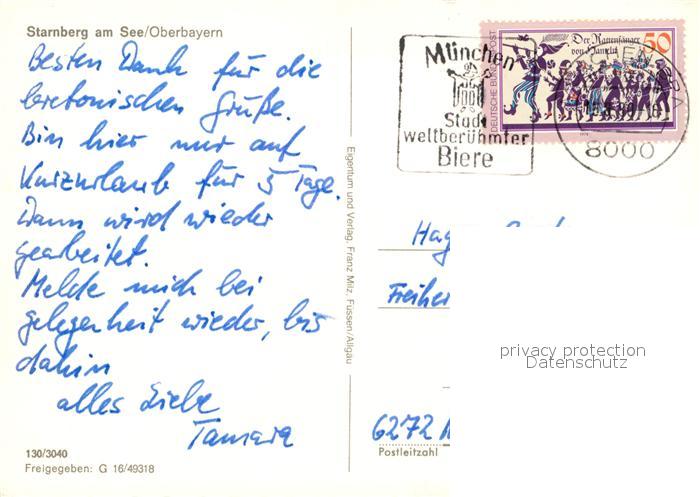 Starnberg am See/Oberbayern
Besten Dank für die
bretonischen Grüße.
Bin hier nur auf
Kurzurlaub für 5 Tage.
Dann wird wieder
gearbeitet.
Melde mich bei
gelegenheit wieder, bis
dahin
alles Liebe
Tamara
130/3040
Freigegeben: G 16/49318
Eigentum und Verlag, Franz Milz, Füssen/Allgäu
München
Stadt
weltberühmter
Biere
DEUTSCHE BUNDESPOST
Der Rattenfänger
von Hameln
50
8000
Hag
Freiher
6272
Postleitzahl
privacy protection
Datenschutz